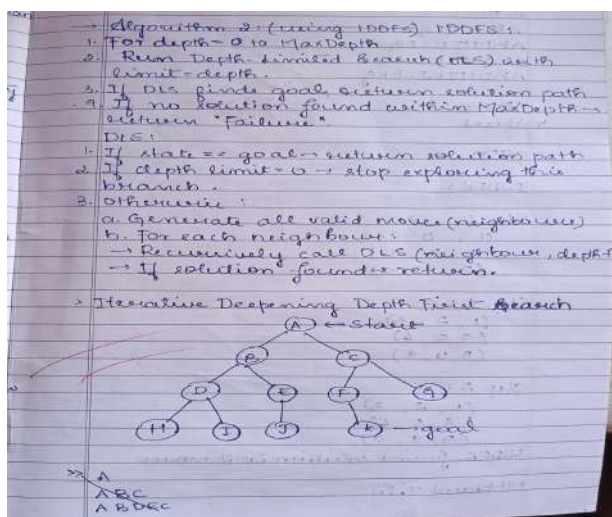 → Algorithm 2: (using IDDFS) IDDFS:
1. For depth = 0 to MaxDepth
2. Run Depth-Limited Search (DLS) with
limit = depth.
3. If DLS finds goal, return solution path
4. If no solution found within MaxDepth →
return "Failure".
DLS:
1. If state == goal → return solution path
2. If depth limit = 0 → stop exploring this
branch.
3. otherwise:
a. Generate all valid moves (neighbours)
b. For each neighbour:
→ Recursively call DLS (neighbour, depth-1
→ If solution found → return.
> Iterative Deepening Depth First Search
A ← Start
B C
D E F G
H I J K — goal
>> A
A B C
A B D E C